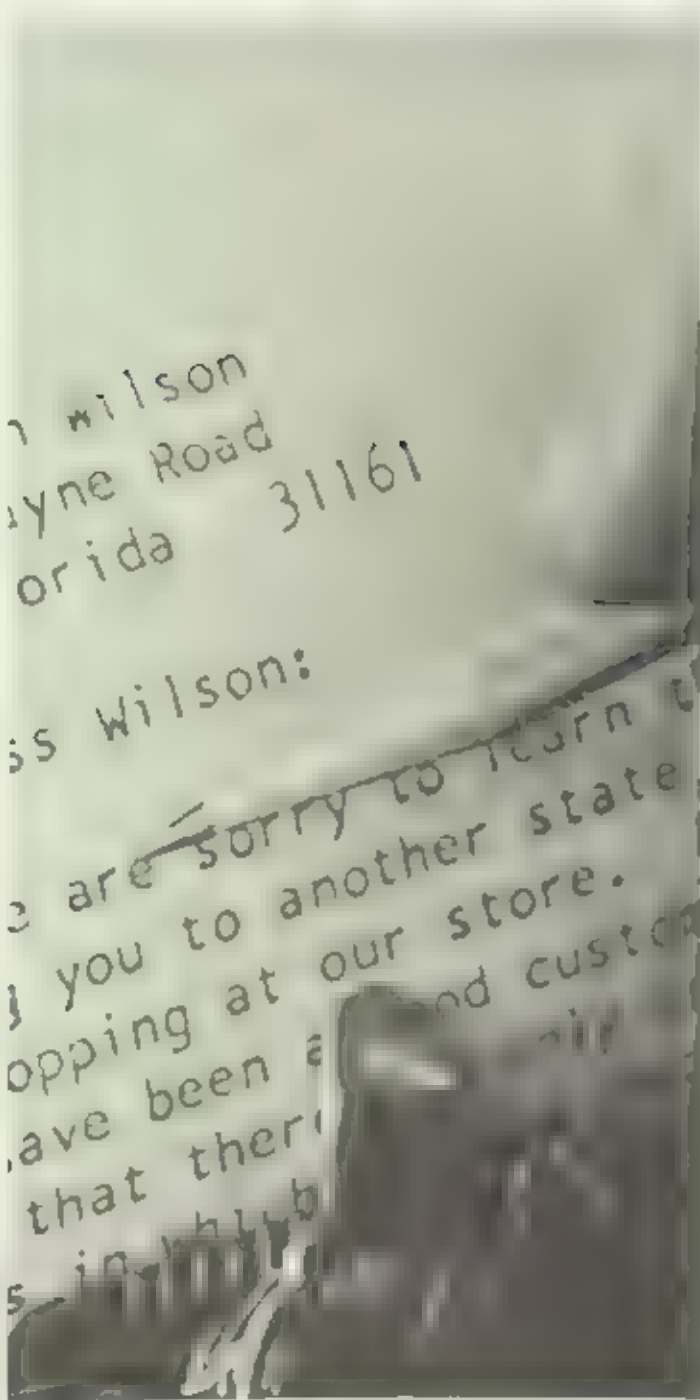 wilson
yne Road
orida 31161
ss Wilson:
are sorry to learn t
you to another state
opping at our store.
ave been a od custo
that ther
s in